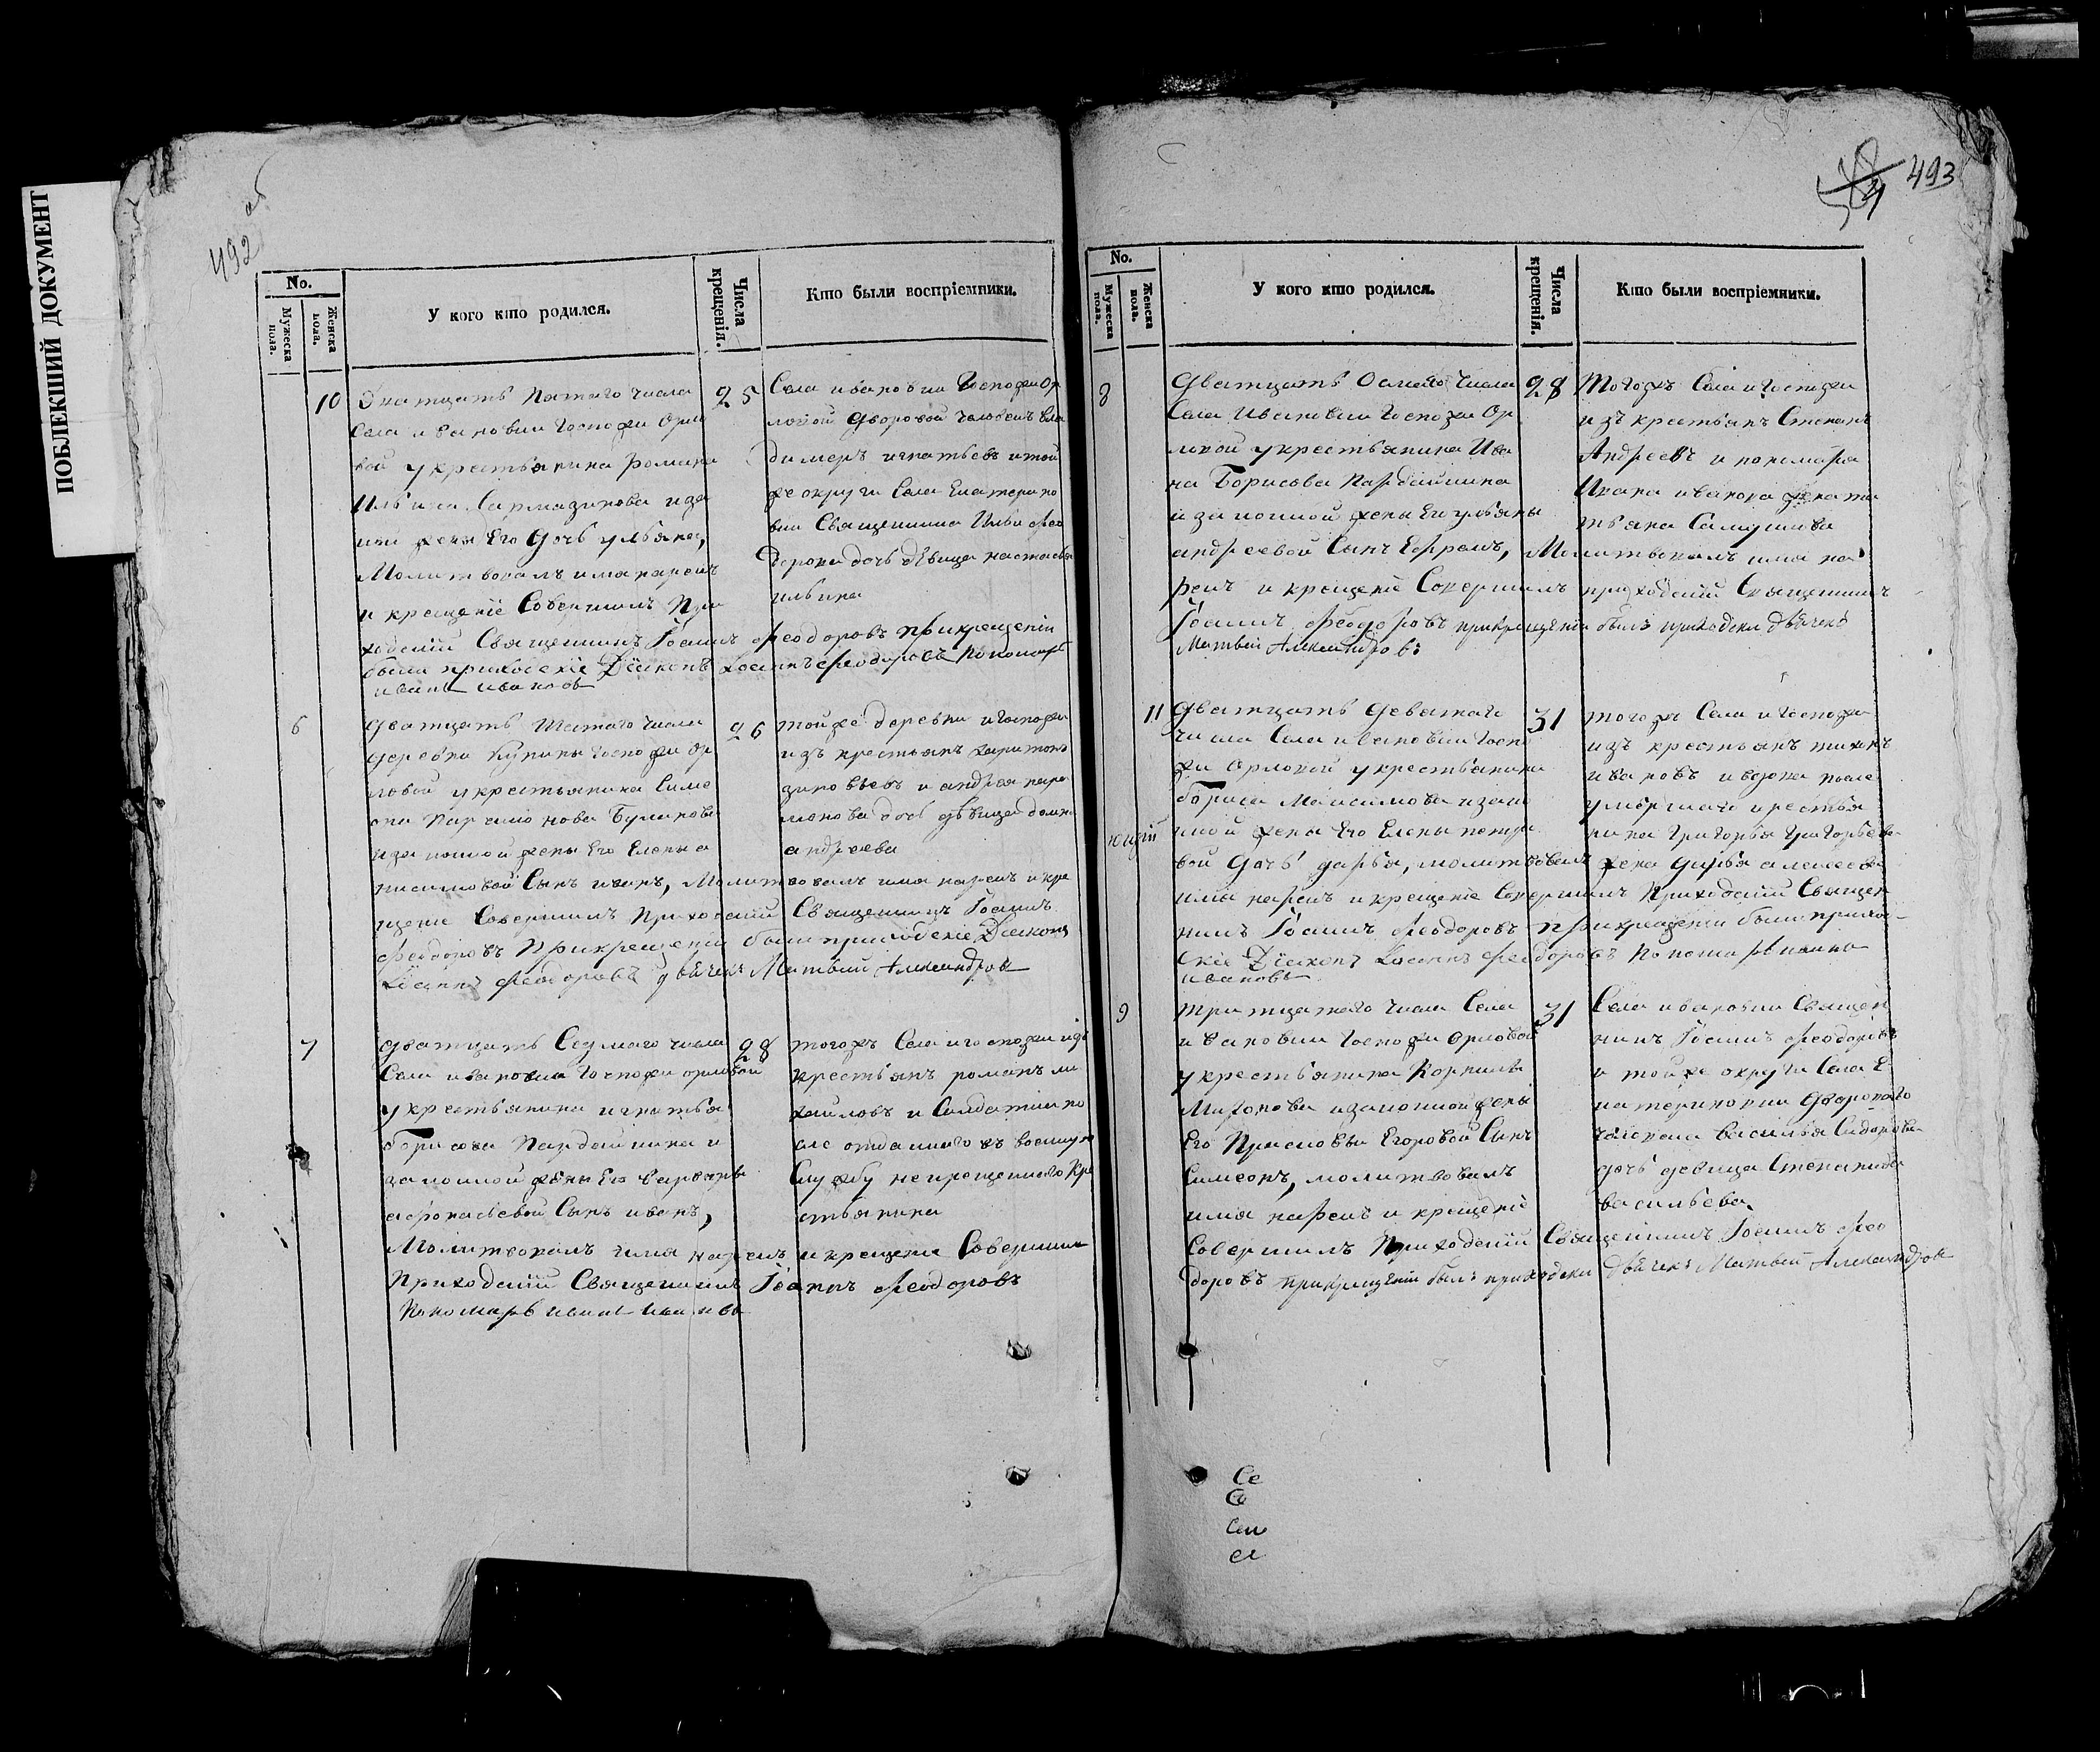 ПОБЛЕКШИЙ ДОКУМЕНТ
492 об
No.
Мужеска пола.
Женска пола.
У кого кто родился.
Числа крещенія.
Кто были воспріемники.
10
Дватцать Пятаго числа
Села ивановки Госпожи Орло
вой у крестьянина Романа
Ильина Кармазинова иза
кон жены Его Дочь ульяна,
Молитвовалъ имя нареч
и крещеніе Совершилъ При
ходскій Священникъ Іоаннъ Феодоровъ прикрещеніи
были приходскіе Діаконъ Іоаннъ Феодоровъ Пономарь
иванъ ивановъ
25
Села ивановки Госпожи Ор
ловой Дворовой человекъ Вла
димеръ игнатьевъ итой
же округи Села Екатерино
вки Священника Ильи Фео
дорова дочь дѣвица настасья
ильина
6
Дватцать Шестаго числа
деревни Купины Госпожи Ор
ловой у крестьянина Симе
она Парамонова Буликова
иза конной жены Его Елены а
нисимовой Сынъ иванъ, Молитвовалъ имя нареч и кре
щеніе Совершилъ Приходскій Священникъ Іоаннъ
Феодоровъ Прикрещеніи были приходскіе Діаконъ
Іоаннъ Феодоровъ дьячекъ Матвѣй Александровъ
26
тойже деревни и Госпожи
изъ крестьянъ харитонъ
зиновьевъ и андрея пара
монова дочь дѣвица домна
андреева
7
Дватцать Седмаго числа
Села ивановки Госпожи орловой
у крестьянина игнатья
борисова Пардашника и
законной жены Его варвары
афонасьевой Сынъ иванъ,
Молитвовалъ имя нареч и крещеніе Совершилъ
Приходскій Священникъ Іоаннъ Феодоровъ
Пономарь иванъ ивановъ
28
тогожъ Села и госпожи изъ
крестьянъ романъ ми
хайловъ и Солдатка по
сле отданного въ военную
Службу некрещенаго Кре
стьянина
493
No.
Мужеска пола.
Женска пола.
У кого кто родился.
Числа крещенія.
Кто были воспріемники.
8
Дватцать Осмаго Числа
Села Ивановки Госпожи Ор
ловой у крестьянина Ива
на Борисова Пардашника
и законной жены Его ульяны
андреевой Сынъ Ефремъ, Молитвовалъ имя на
реч и крещеніе Совершилъ приходскій Священникъ
Іоаннъ Феодоровъ прикрещеніи былъ приходски дьячекъ
Матвѣй Александровъ
28
Тогожъ Села и Госпожи
изъ крестьянъ Степанъ
Андреевъ и пономаря
Ивана иванова жена та
тьяна Самуилова
11
Дватцать Деватаго
числа Села ивановки Госпо
жи Орловой у крестьянина
бориса Максимова и зако
нной жены Его Елены
вой Дочь дарья, молитвовалъ
имя нареч и крещеніе Совершилъ Приходскій Священ
никъ Іоаннъ Феодоровъ прикрещеніи были прихо
скіе Діаконъ Іоаннъ Феодоровъ Пономарь иванъ
ивановъ
31
тогожъ Села и Госпожи
изъ крестьянъ тихонъ
ивановъ и вдова после
умершаго крестья
нина Григорья Григорьева
жена дарья алексеева
9
тритцатаго числа Села
ивановки Госпожи Орловой
у крестьянина Корнилы
Миронова и законной жены
Его Прасковьи Егоровой Сынъ
Симеонъ, молитвовалъ
имя нареч и крещеніе
Совершилъ Приходскій Священникъ Іоаннъ Фео
доровъ прикрещеніи былъ приходски дьячекъ Матвѣй Александровъ
31
Села ивановки Священ
никъ Іоаннъ Феодоровъ
и тойже округи Села Е
катериновки Дворового
человека василья Сидорова
дочь девица Степанида
васильева.
Се
Се
Сеи
се